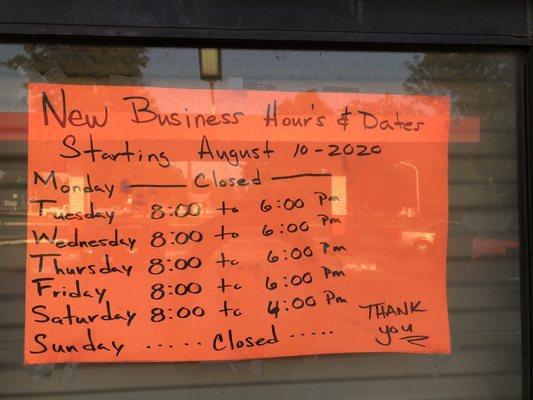 New Business Hour's & Dates
Starting August 10-2020
Monday — Closed —
Tuesday 8:00 to 6:00 Pm
Wednesday 8:00 to 6:00 Pm
Thursday 8:00 to 6:00 Pm
Friday 8:00 to 6:00 Pm
Saturday 8:00 to 4:00 Pm
Sunday ..... Closed .....
THANK
you